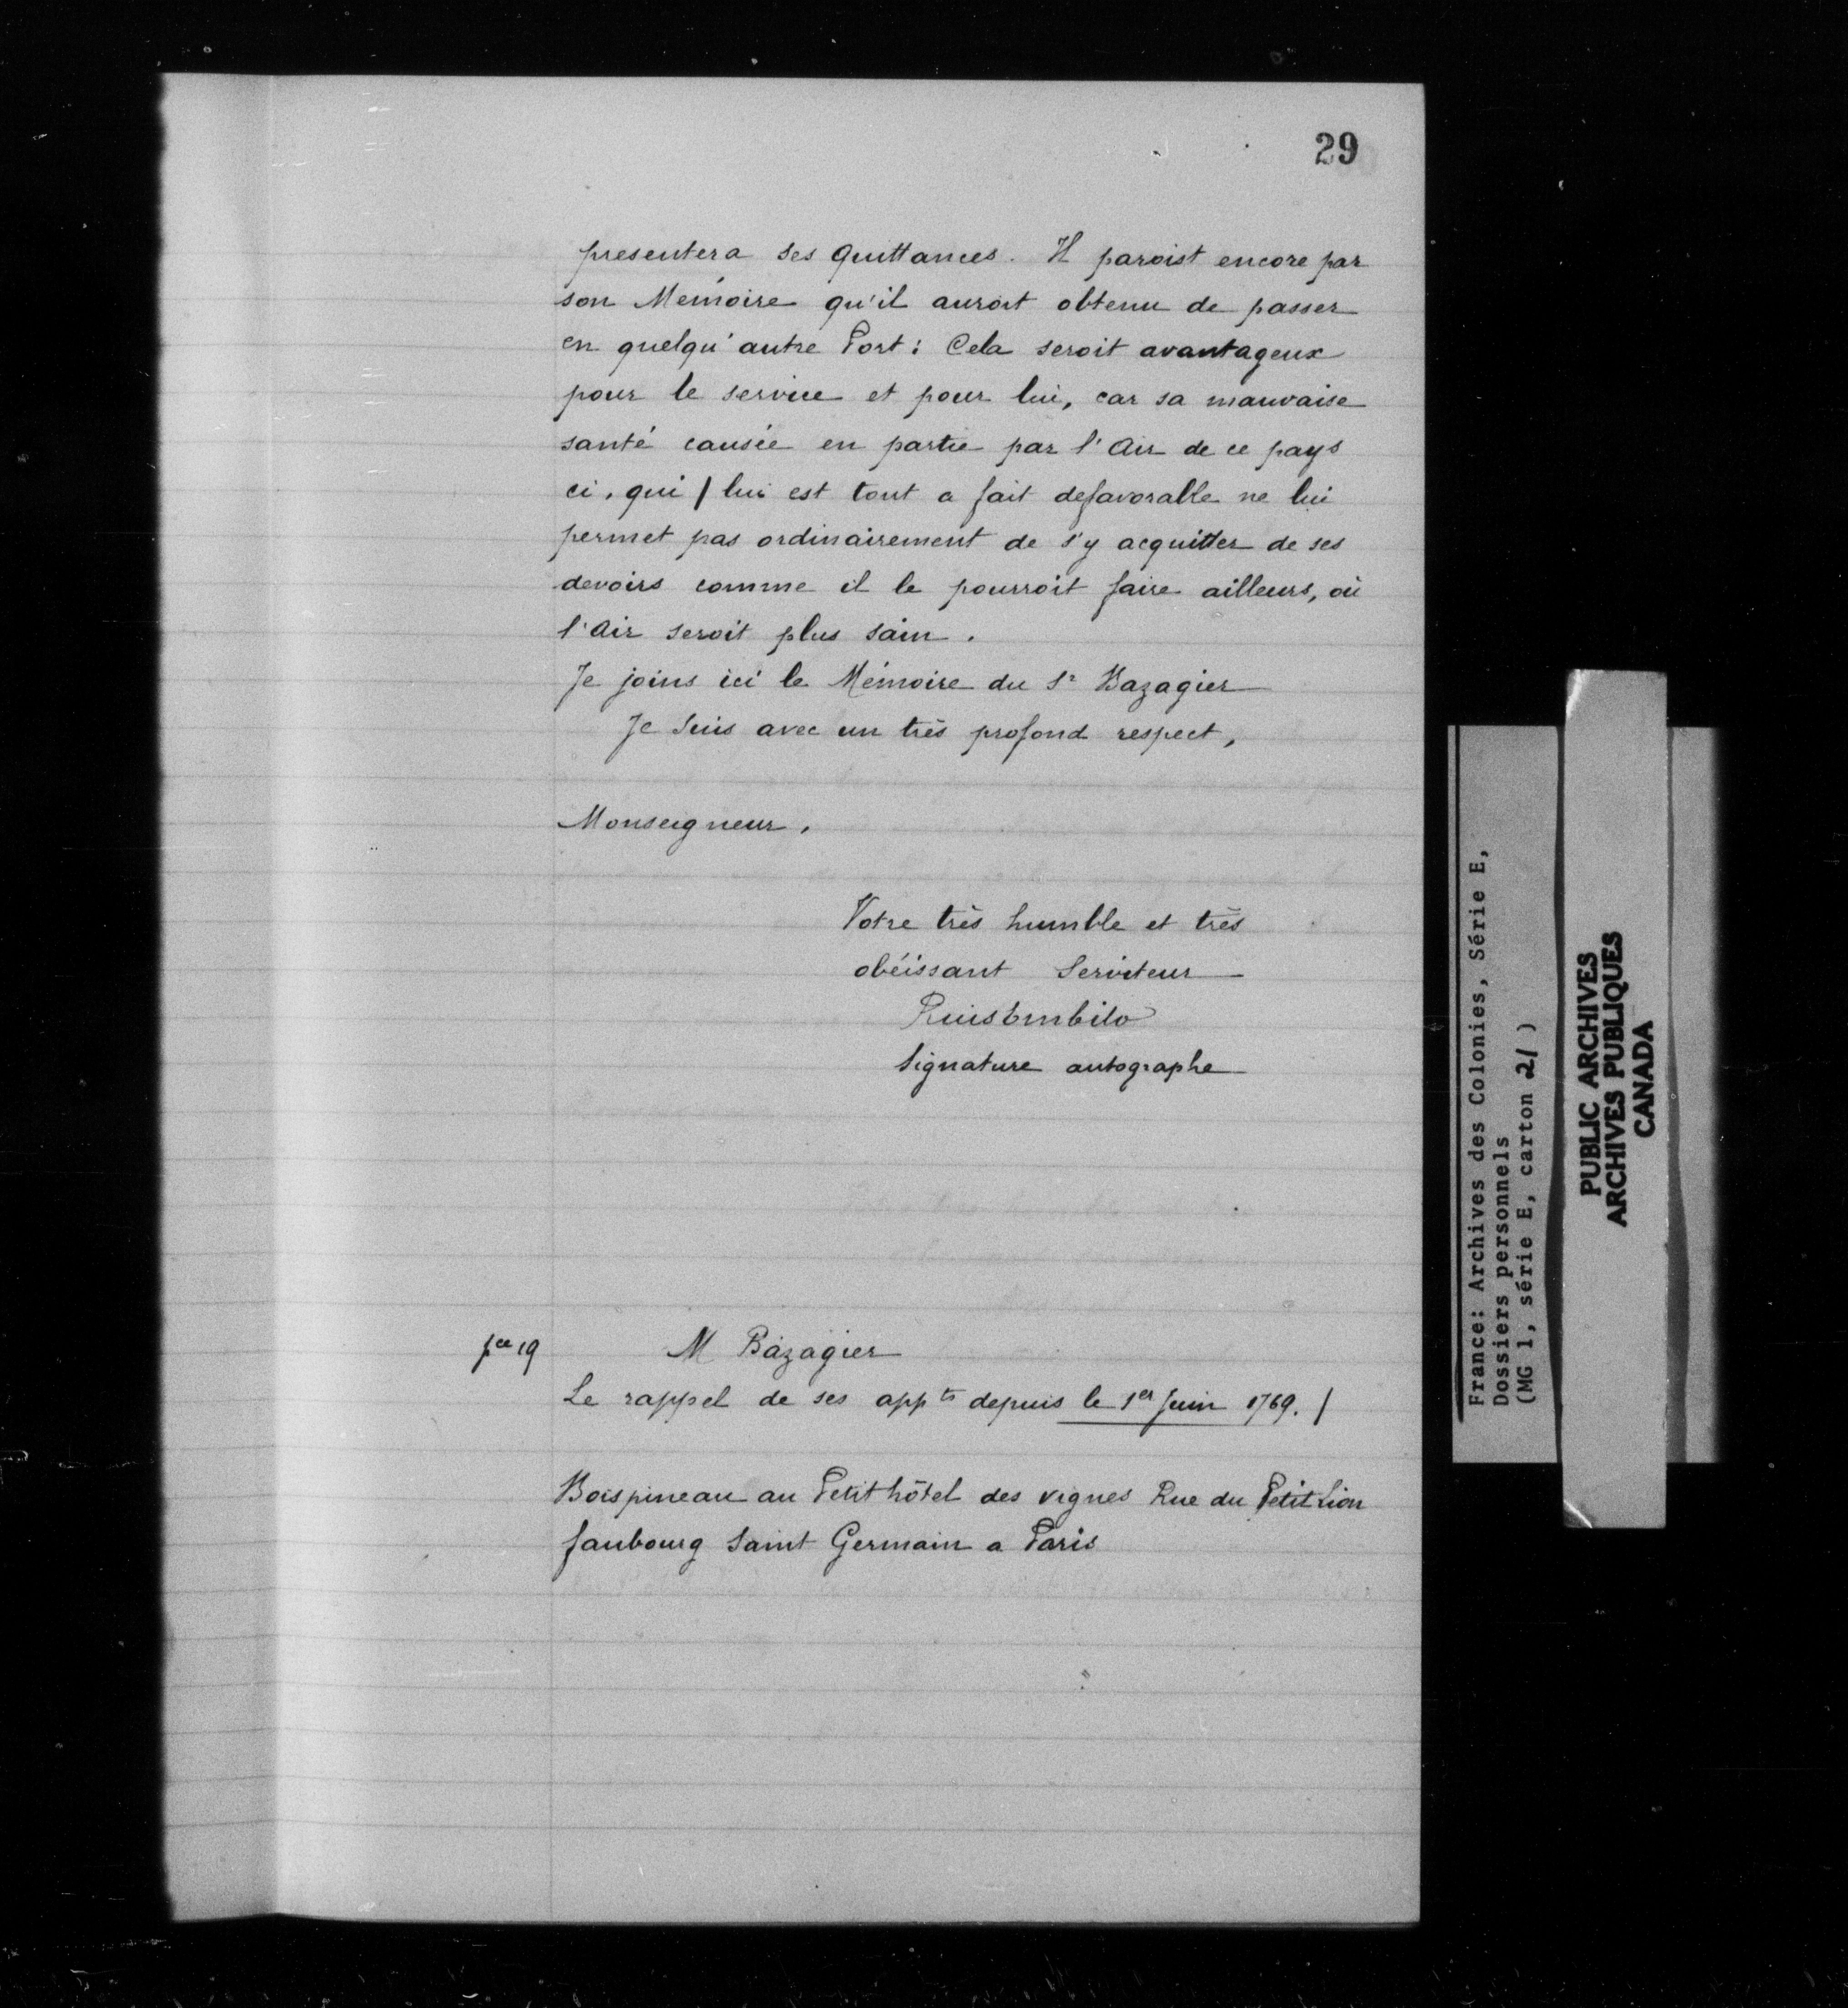 29
presentera ses Quittances. Il paroist encore par
son Memoire qu'il auroit obtenu de passer
en quelqu'autre Port: Cela seroit avantageux
pour le service et pour lui, car sa mauvaise
santé causée en partie par l'Air de ce pays
ci, qui / lui est tout a fait defavorable ne lui
permet pas ordinairement de s'y acquitter de ses
devoirs comme il le pourroit faire ailleurs, où
l'Air seroit plus sain.
Je joins ici le Mémoire du Sr Bazagier
Je suis avec un très profond respect,
Monseigneur,
Votre très humble et très
obéissant Serviteur
Ruis Embito
Signature autographe
pce 19
M Bazagier
Le rappel de ses appts depuis le 1er Juin 1769. /
Boispineau au Petit hôtel des vignes Rue du Petit Lion
faubourg Saint Germain a Paris
France: Archives des Colonies, Série E,
Dossiers personnels
(MG 1, série E, carton 21)
PUBLIC ARCHIVES
ARCHIVES PUBLIQUES
CANADA